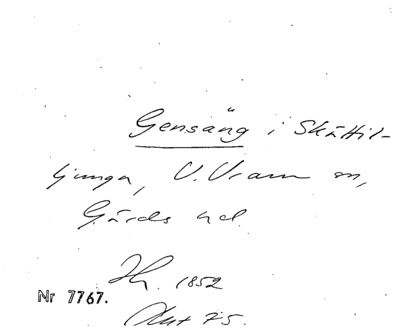 Gensäng i Skättil-
ljunga, V. Vram sn,
Gärds hd.
Fh. 1852
Nr 7767.
Akt 75.